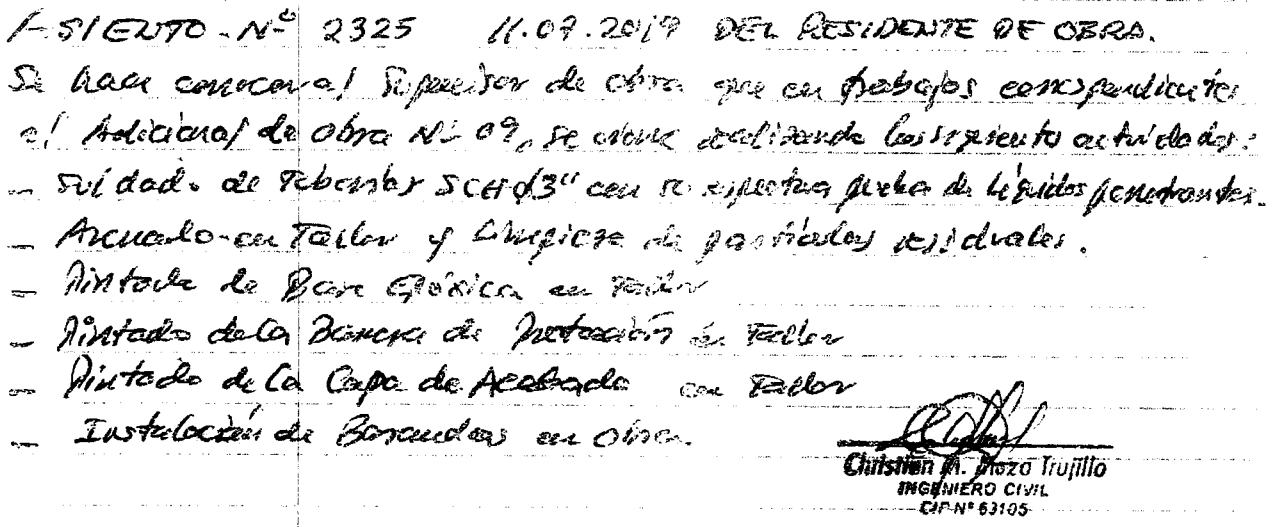 ASIENTO-Nº 2325 11.07.2019 DEL RESIDENTE DE OBRA.
Se hace conocer al Supervisor de obra que en trabajos correspondientes
al Adicional de obra Nº 09, se viene realizando las siguiente actividades:
- Soldado de Tuberías SCH Ø3" con su respectiva prueba de líquidos penetrantes.
- Arenado en Taller y Limpieza de partículas residuales.
- Pintado de Base Epóxica en Taller
- Pintado de la Barrera de Protección en Taller
- Pintado de la Capa de Acabado en Taller
- Instalación de Barandas en obra.
Christian M. Trujillo
INGENIERO CIVIL
CIP Nº 63105